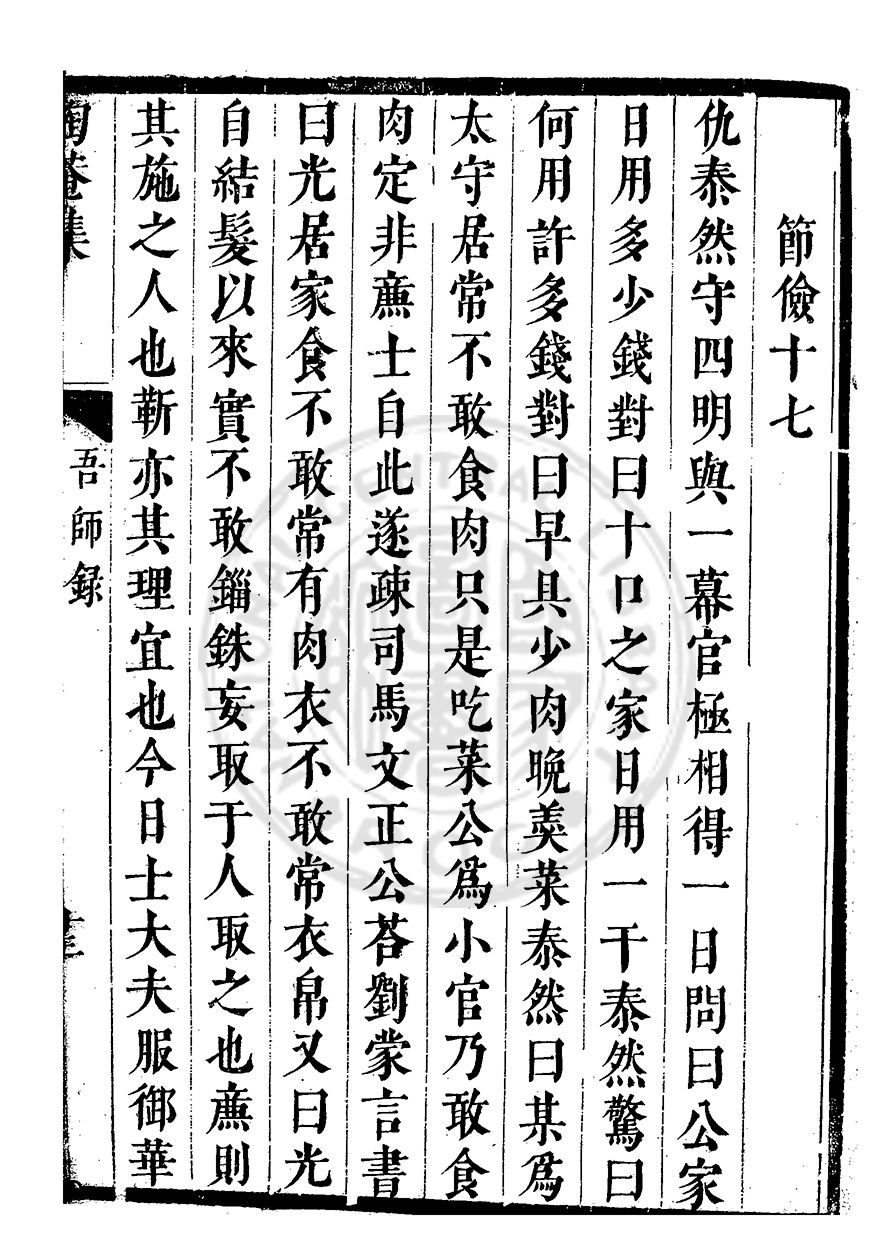 節儉十七
仇泰然守四明與一幕官極相得一日問曰公家
日用多少錢對曰十口之家日用一千泰然驚曰
何用許多錢對曰早具少肉晚羹菜泰然曰某爲
太守居常不敢食肉只是吃菜公爲小官乃敢食
肉定非亷士自此遂疎司馬文正公荅劉蒙言書
曰光居家食不敢常有肉衣不敢常衣帛又曰光
自結髮以來實不敢錙銖妄取于人取之也亷則
其施之人也靳亦其理宜也今日士大夫服御華
陶菴集
吾師録